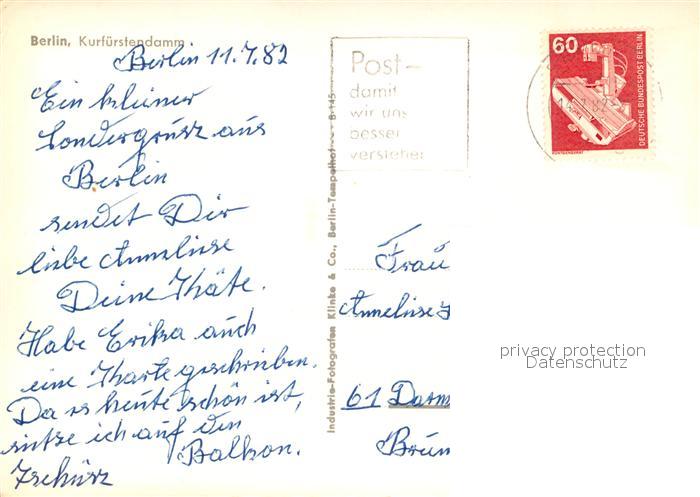 Berlin, Kurfürstendamm
Berlin 11.7.82
Ein kleiner
Sondergrusz aus
Berlin
sendet Dir
liebe Anneliese
Deine Käte.
Habe Erika auch
eine Karte geschrieben.
Da es heute schön ist,
sitze ich auf den
Balkon.
Tschüsz
Industrie-Fotografen Klinke & Co., Berlin-Tempelhof
B 145
Post-
damit
wir uns
besser
verstehen
60
DEUTSCHE BUNDESPOST BERLIN
RÖNTGENGERÄT
7.82
Frau
Anneliese
61 Darms
Brun
privacy protection
Datenschutz